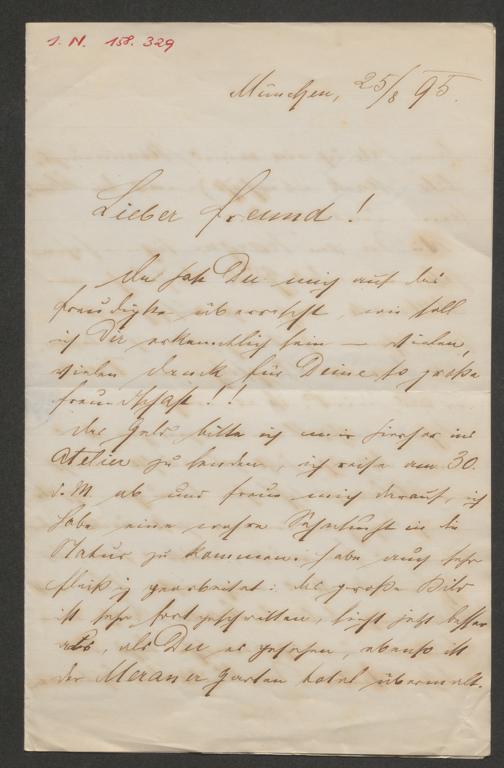 J. N. 158.329
München, 25/8 95.
Lieber Freund!
Da hast Du mich auf das
freudigste überrascht, wie soll
ich Dir erkenntlich sein – vielen,
vielen Dank für Deine so große
Freundschaft!!
Das Geld bitte ich mir hierher ins
Atelier zu senden, ich reise am 30.
d. M. ab und freue mich darauf, ich
habe eine wahre Sehnsucht in die
Natur zu kommen; habe auch sehr
fleißig gearbeitet: das große Bild
ist sehr fortgeschritten, sieht jetzt besser
aus, als Du es gesehen, ebenso ist
der Meraner Garten total übermalt.